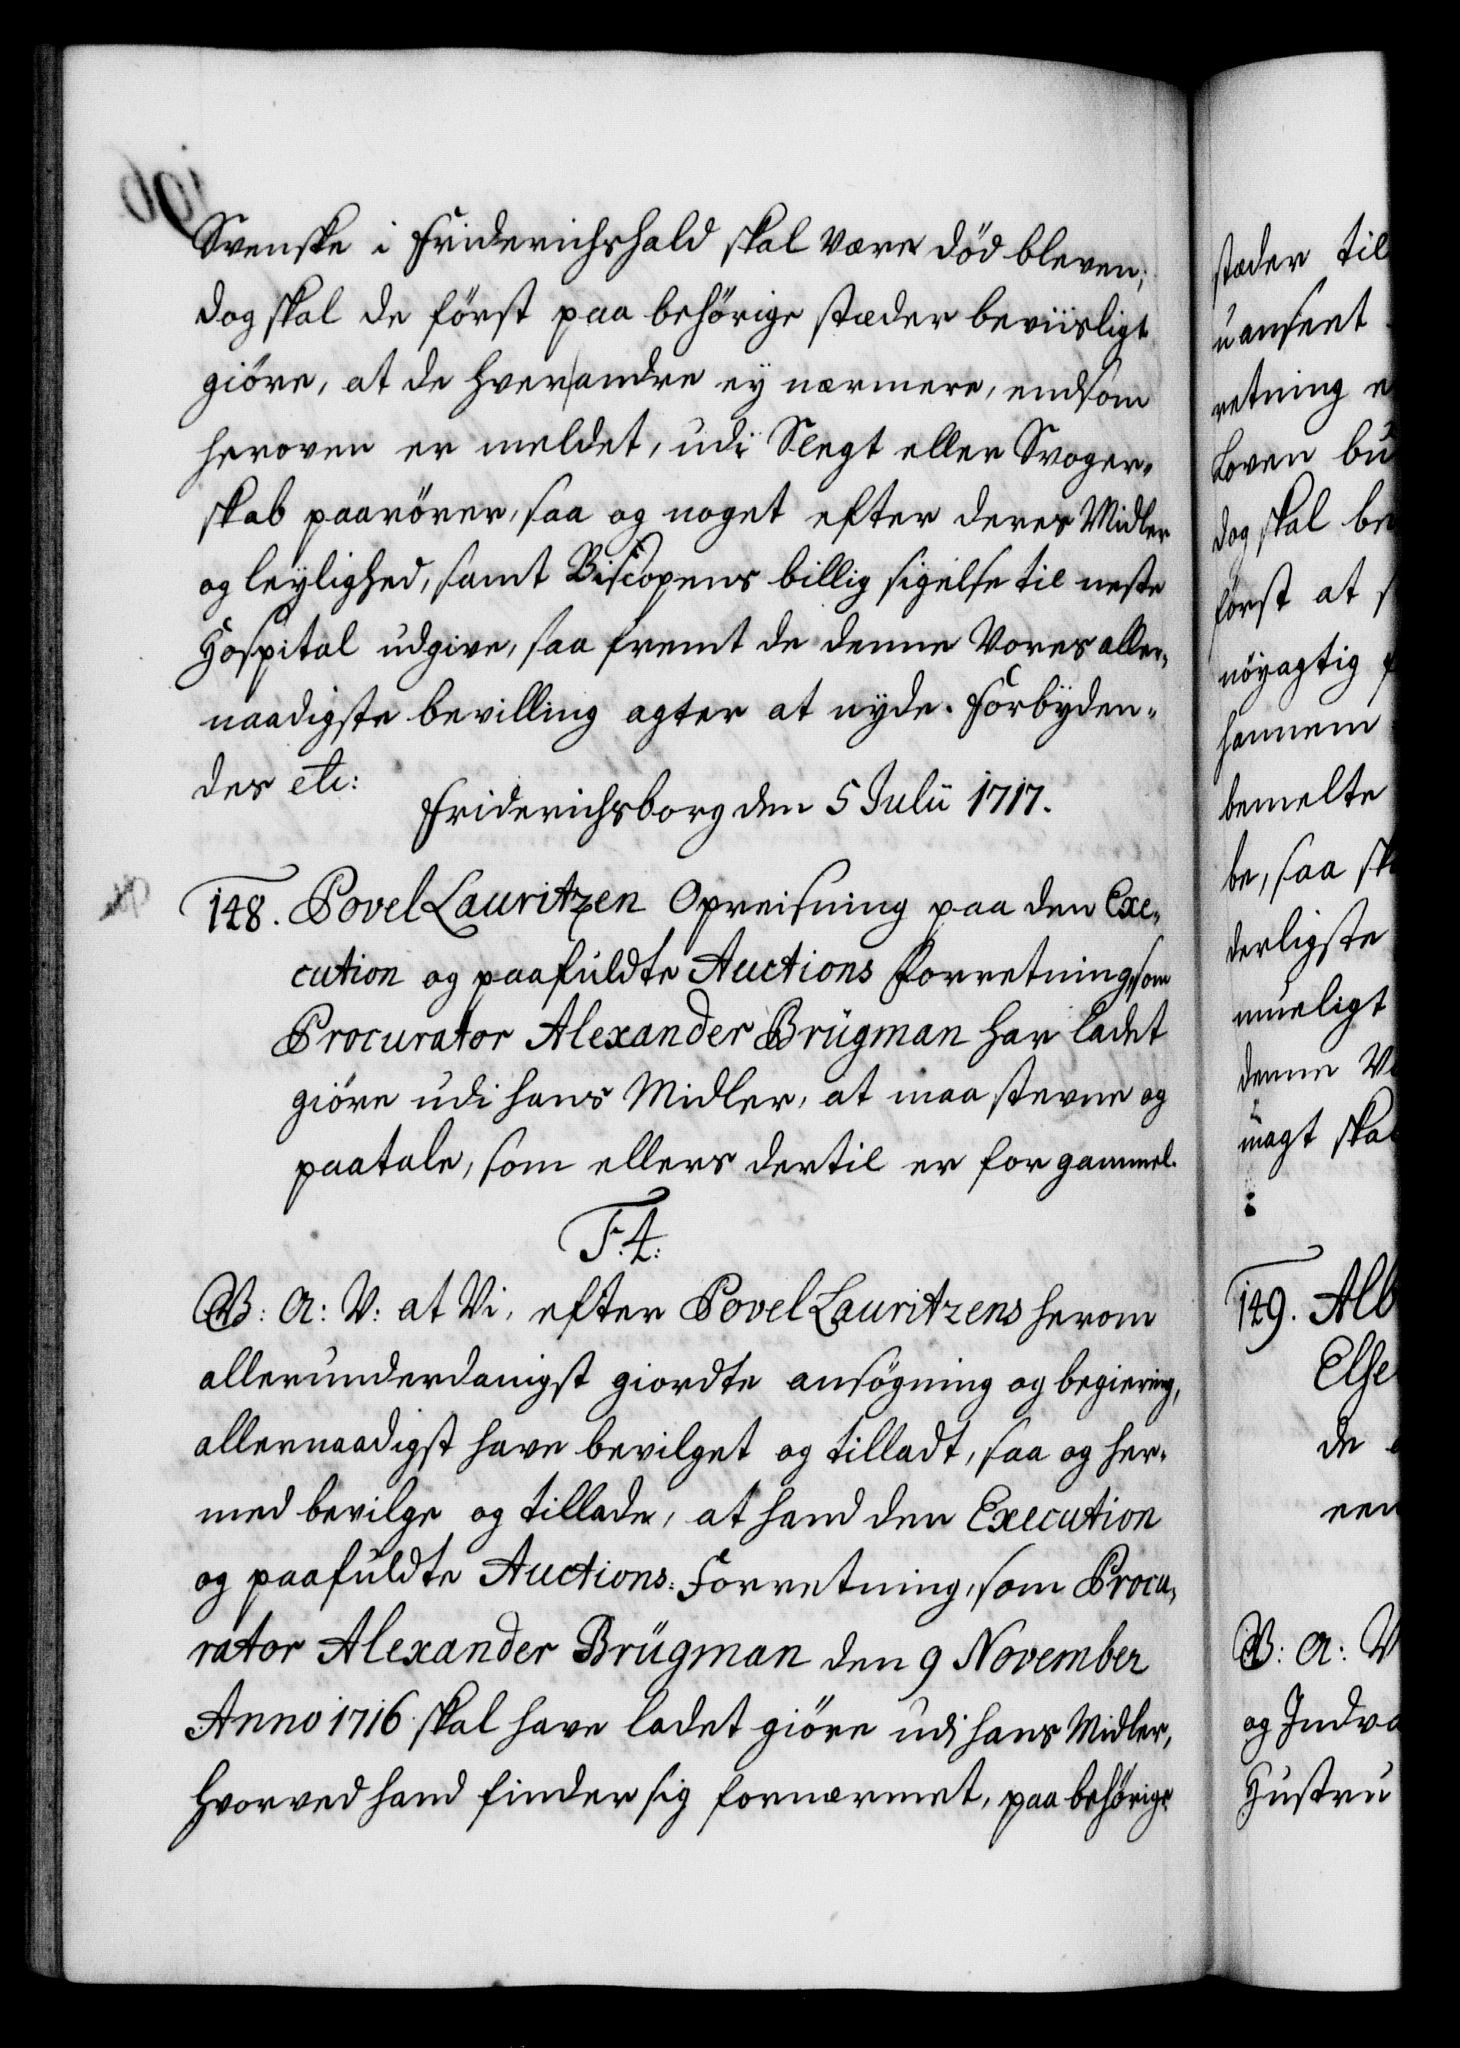 Svenske i Friderichshald skal være død bleven;
dog skal de först paa behörige stæder beviisligt
giöre, at de hverandre ey nærmere, endsom
heroven er meldet, udi Slegt eller Svoger-
skab paarörer, saa og noget efter deres Midler
og leylighed, samt Biscopens billig sigelse til neste
Hospital udgive, saa fremt de denne Vores aller-
naadigste bevilling agter at nyde. Forbyden-
des etc:
Friderichsborg den 5 Julii 1717.
148. Povel Lauritzen Opreisning paa den Exe-
cution og paafuldte Auctions forretning, som
Procurator Alexander Brügman har ladet
giöre udi hans Midler, at maa stevne og
paatale, som ellers dertil er for gammel.
F. 4:
B: A: V: at Vi, efter Povel Lauritzens herom
allerunderdanigst giordte ansøgning og begiering,
allernaadigst have bevilget og tilladt, saa og her-
med bevilge og tillade, at hand den Execution
og paafuldte Auctions: Forretning, som Procu-
rator Alexander Brügman den 9 November
Anno 1716 skal have ladet giöre udi hans Midler,
hvorved hand finder sig fornærmet, paa behörige
stæder til
uanseet
retning
Loven
dog skal
först at
nöyagtig
hannem
bemelte
be, saa
derligste
mueligt
denne
magt
149.
de
B: A: V
og
Hustru